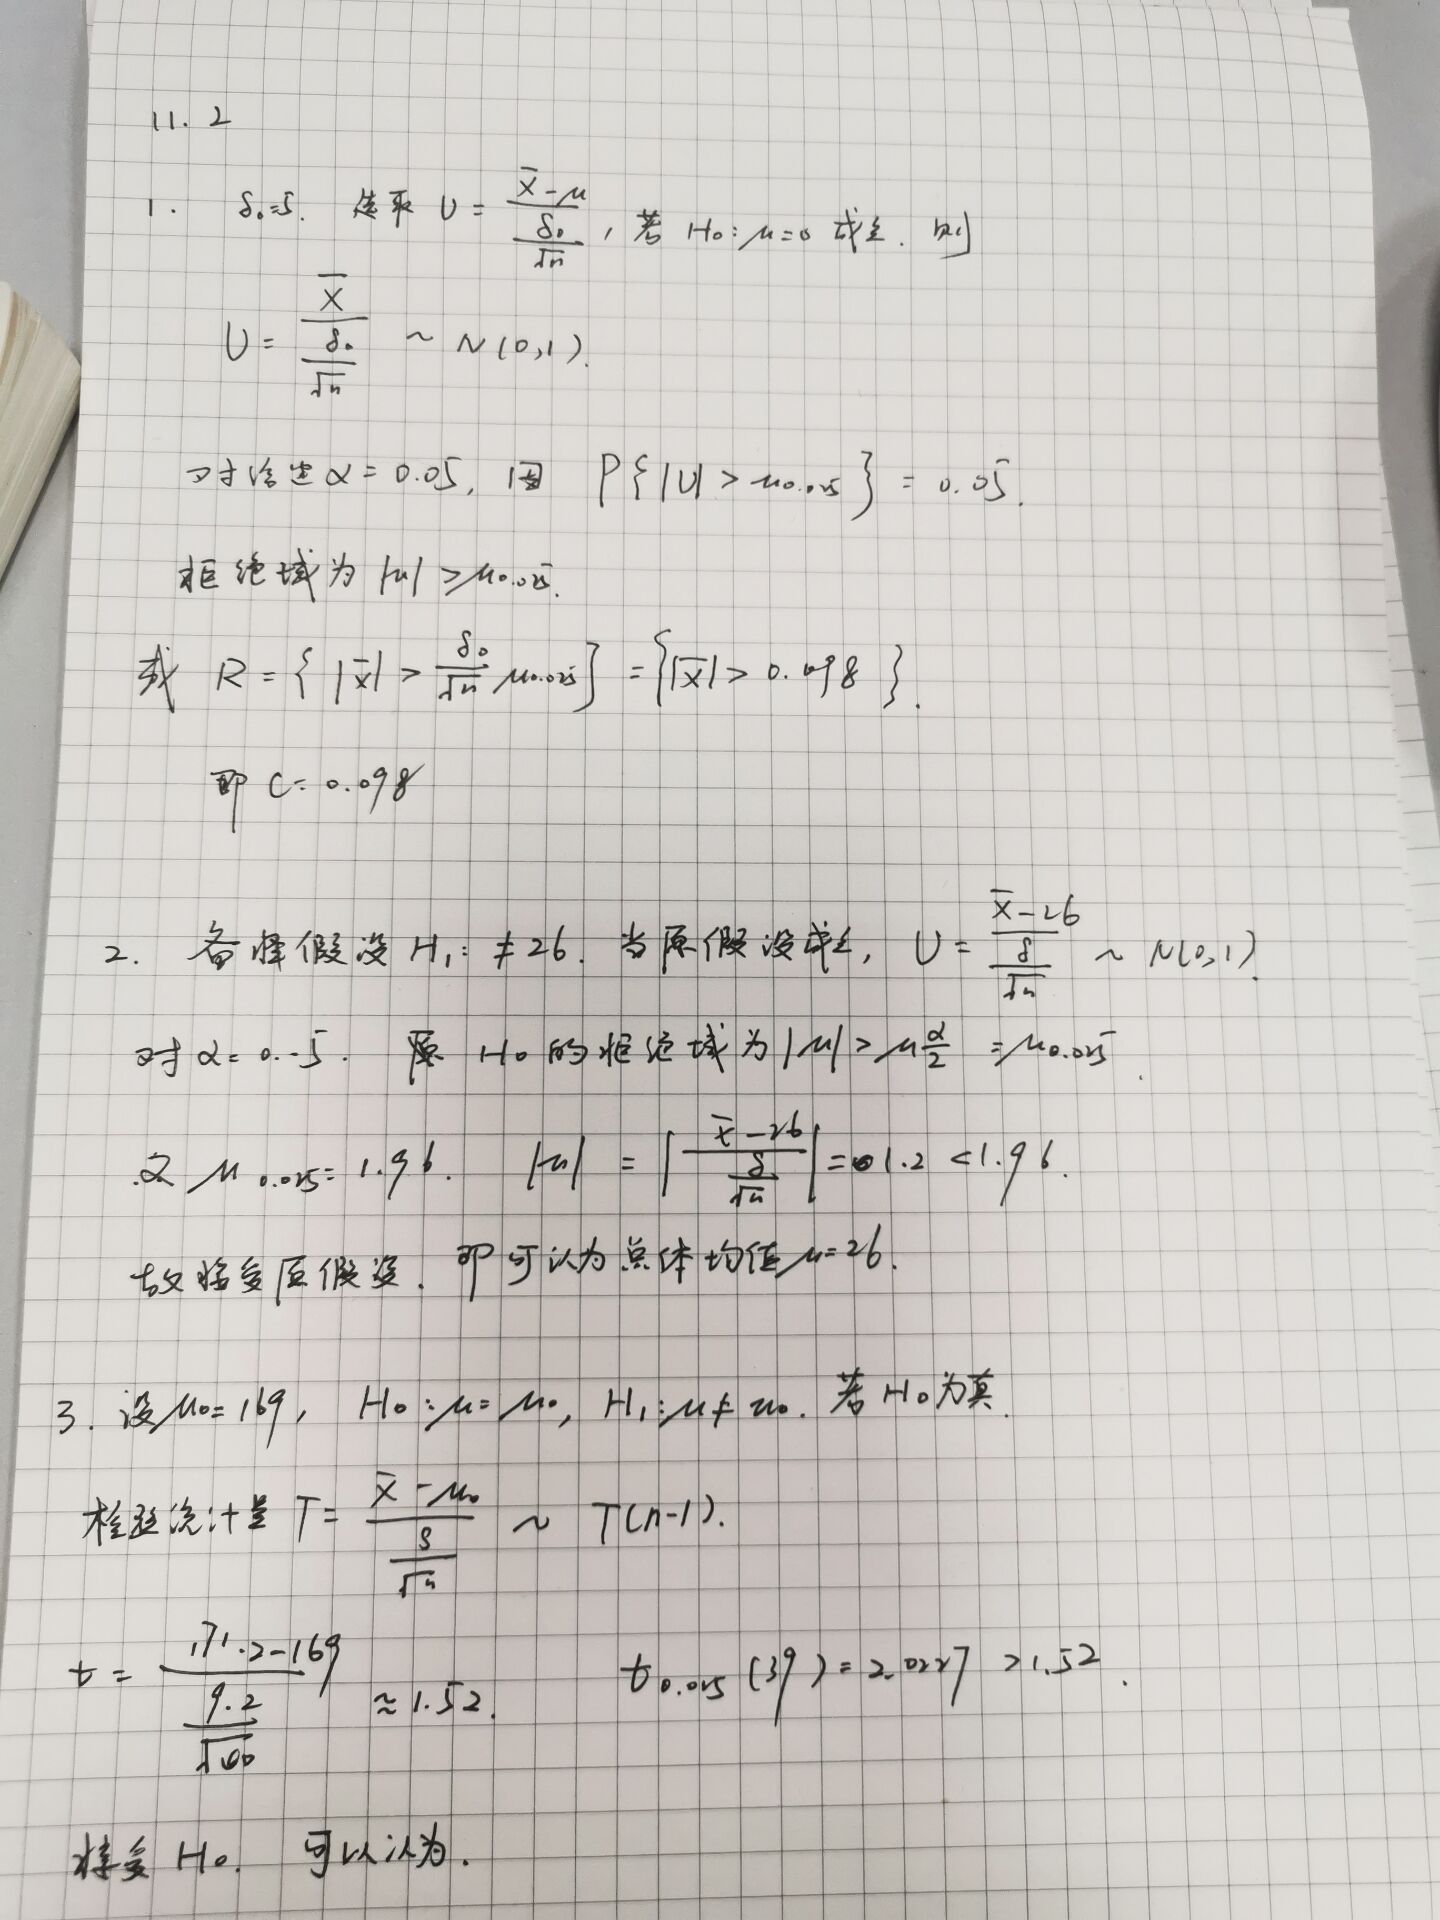 11.2
1. δ₀=5. 选取 U = (x̄-μ)/(δ₀/√n), 若 H₀:μ=0 成立. 则
U = x̄/(δ₀/√n) ~ N(0,1).
对给定α=0.05, 因 P{|U|>μ0.025} = 0.05.
拒绝域为 |u|>μ0.025.
或 R={|x̄|>(δ₀/√n)μ0.025}={|x̄|>0.098}.
即 C=0.098
2. 备择假设 H₁: ≠26. 当原假设成立, U = (x̄-26)/(δ/√n) ~ N(0,1).
对 α=0.05. 原 H₀ 的拒绝域为 |μ|>μα/2 =μ0.025.
又 μ0.025=1.96. |u| = |(x̄-26)/(δ/√n)|=1.2<1.96.
故接受原假设. 即可认为总体均值μ=26.
3. 设μ₀=169, H₀:μ=μ₀, H₁:μ≠μ₀. 若H₀为真.
检验统计量 T= (x̄-μ₀)/(S/√n) ~ T(n-1).
t = (171.2-169)/(9.2/√) ≈1.52. t0.025(39)=2.0227 >1.52.
接受 H₀. 可以认为.